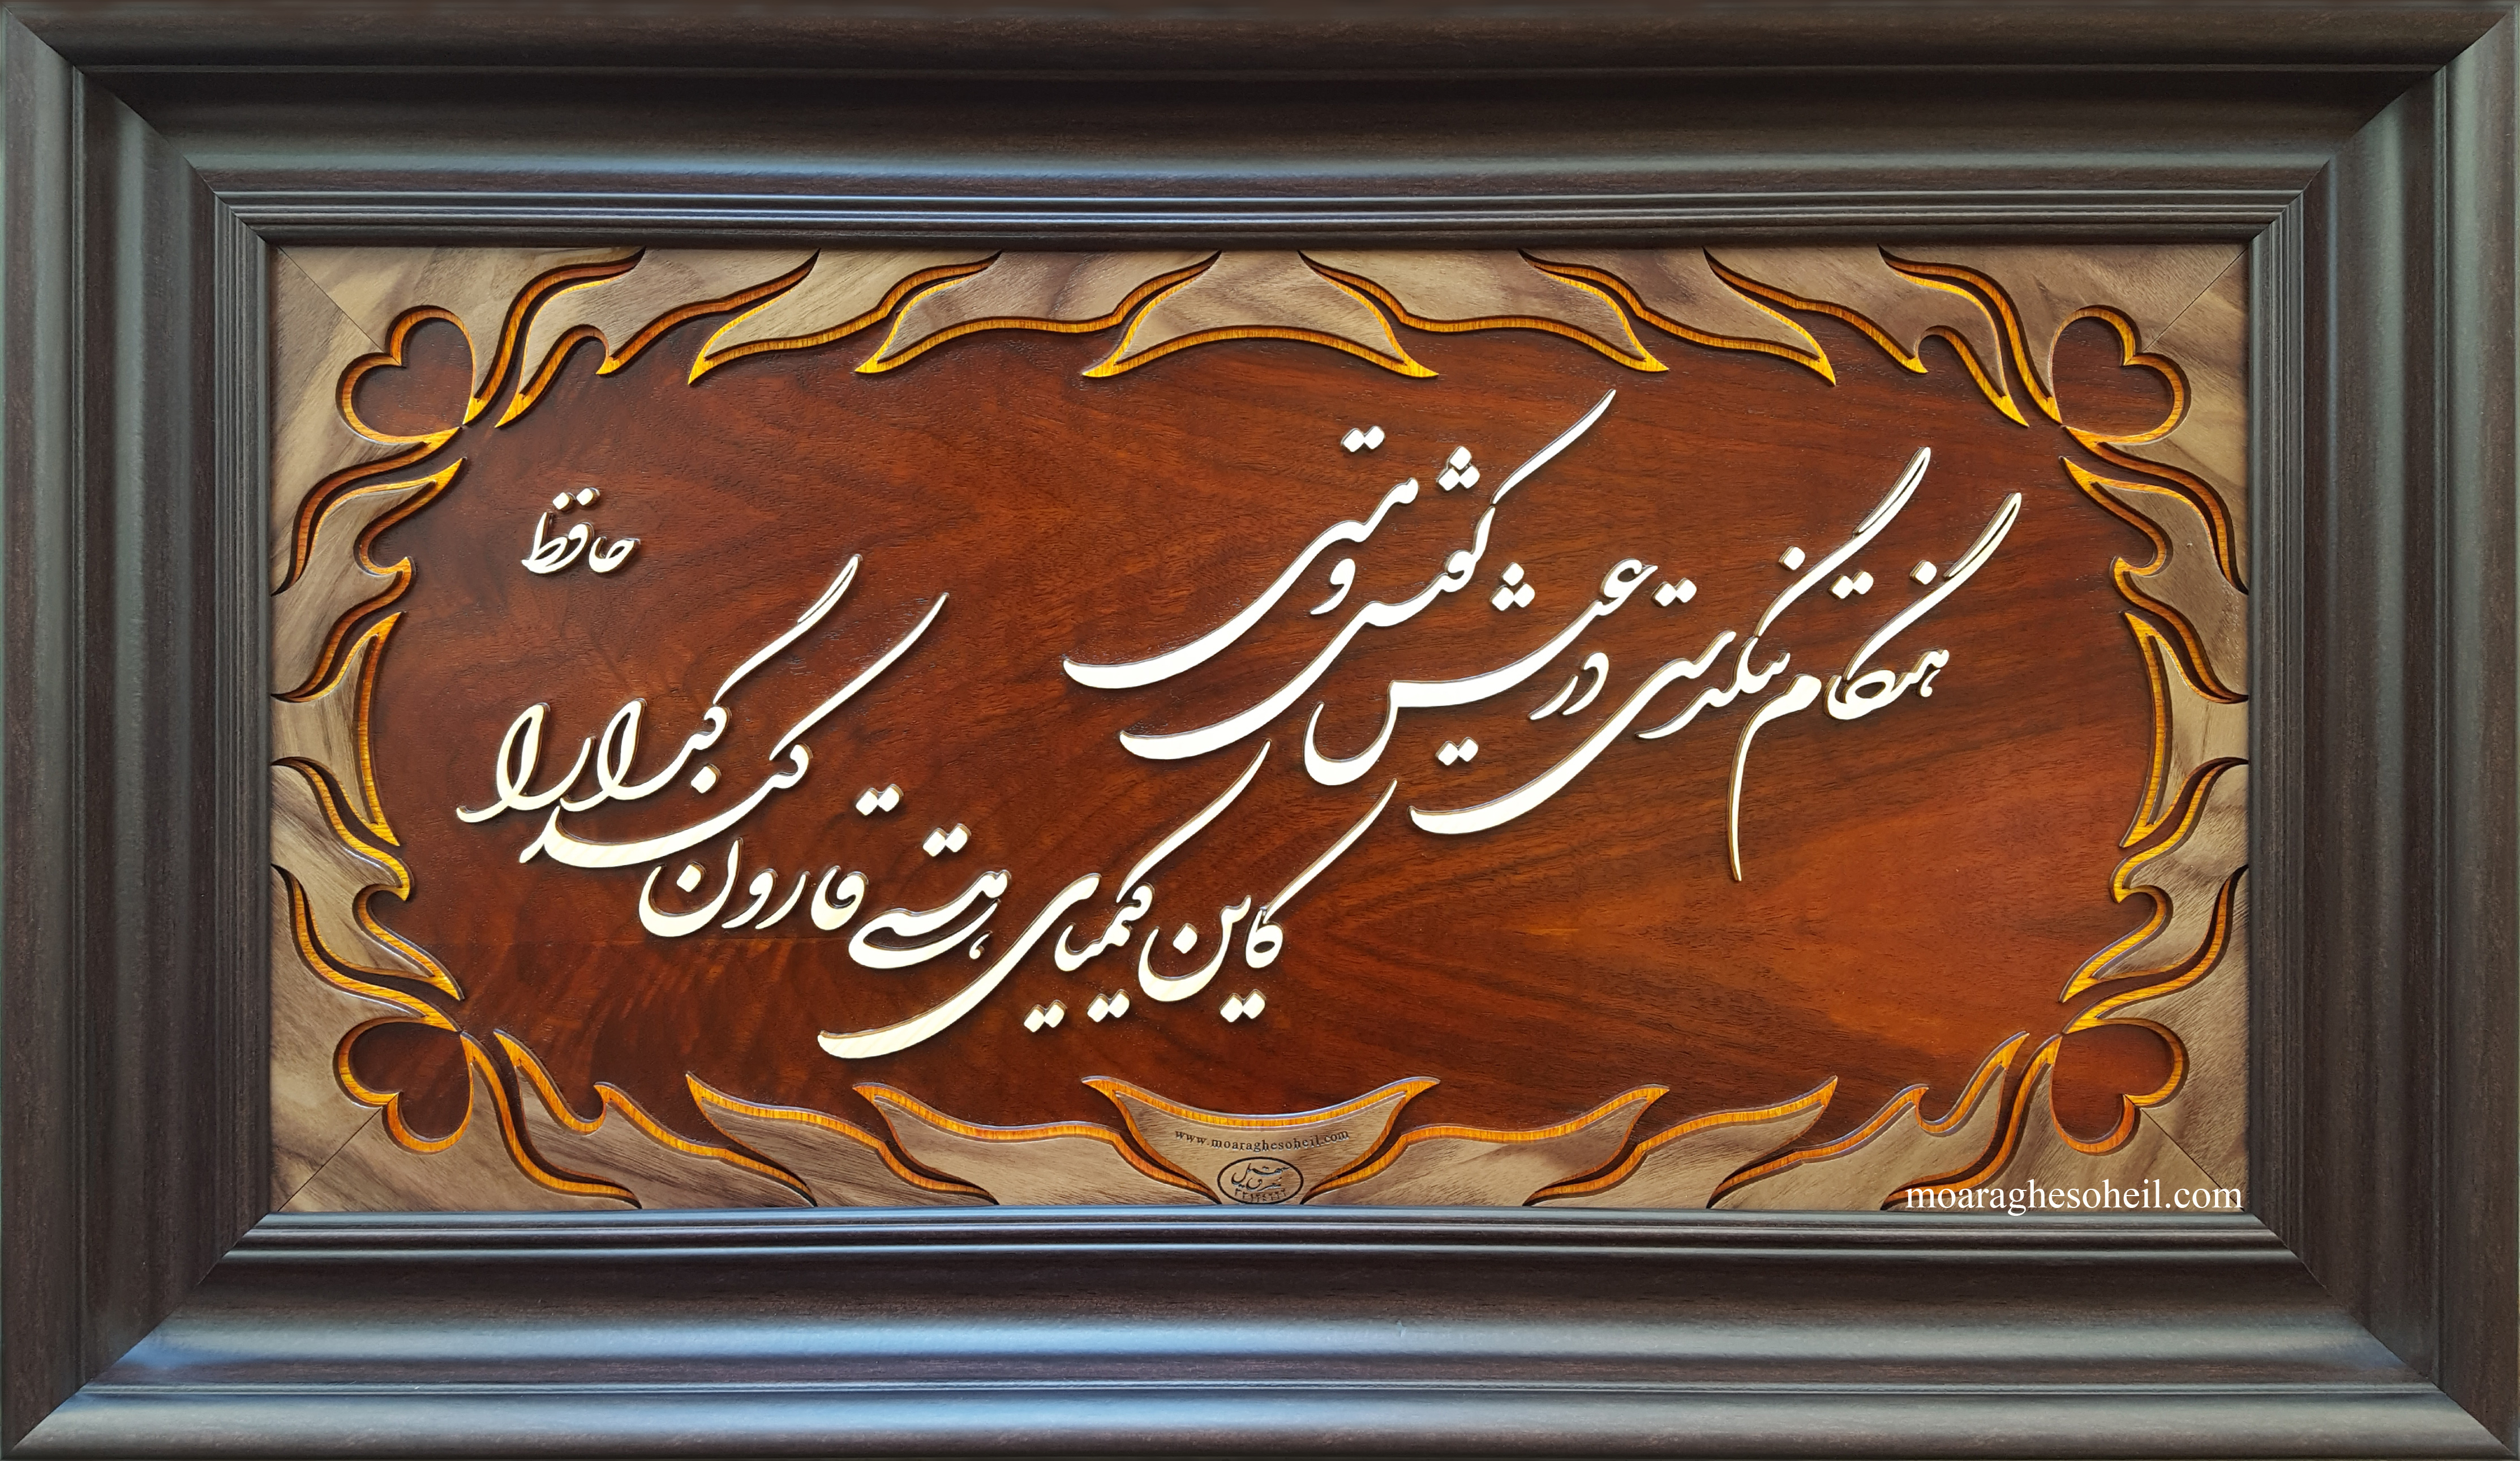 هنگام تنگدستی در عیش کوش و مستی
کاین کیمیای هستی قارون کند گدا را
حافظ
www.moaraghesoheil.com
moaraghesoheil.com